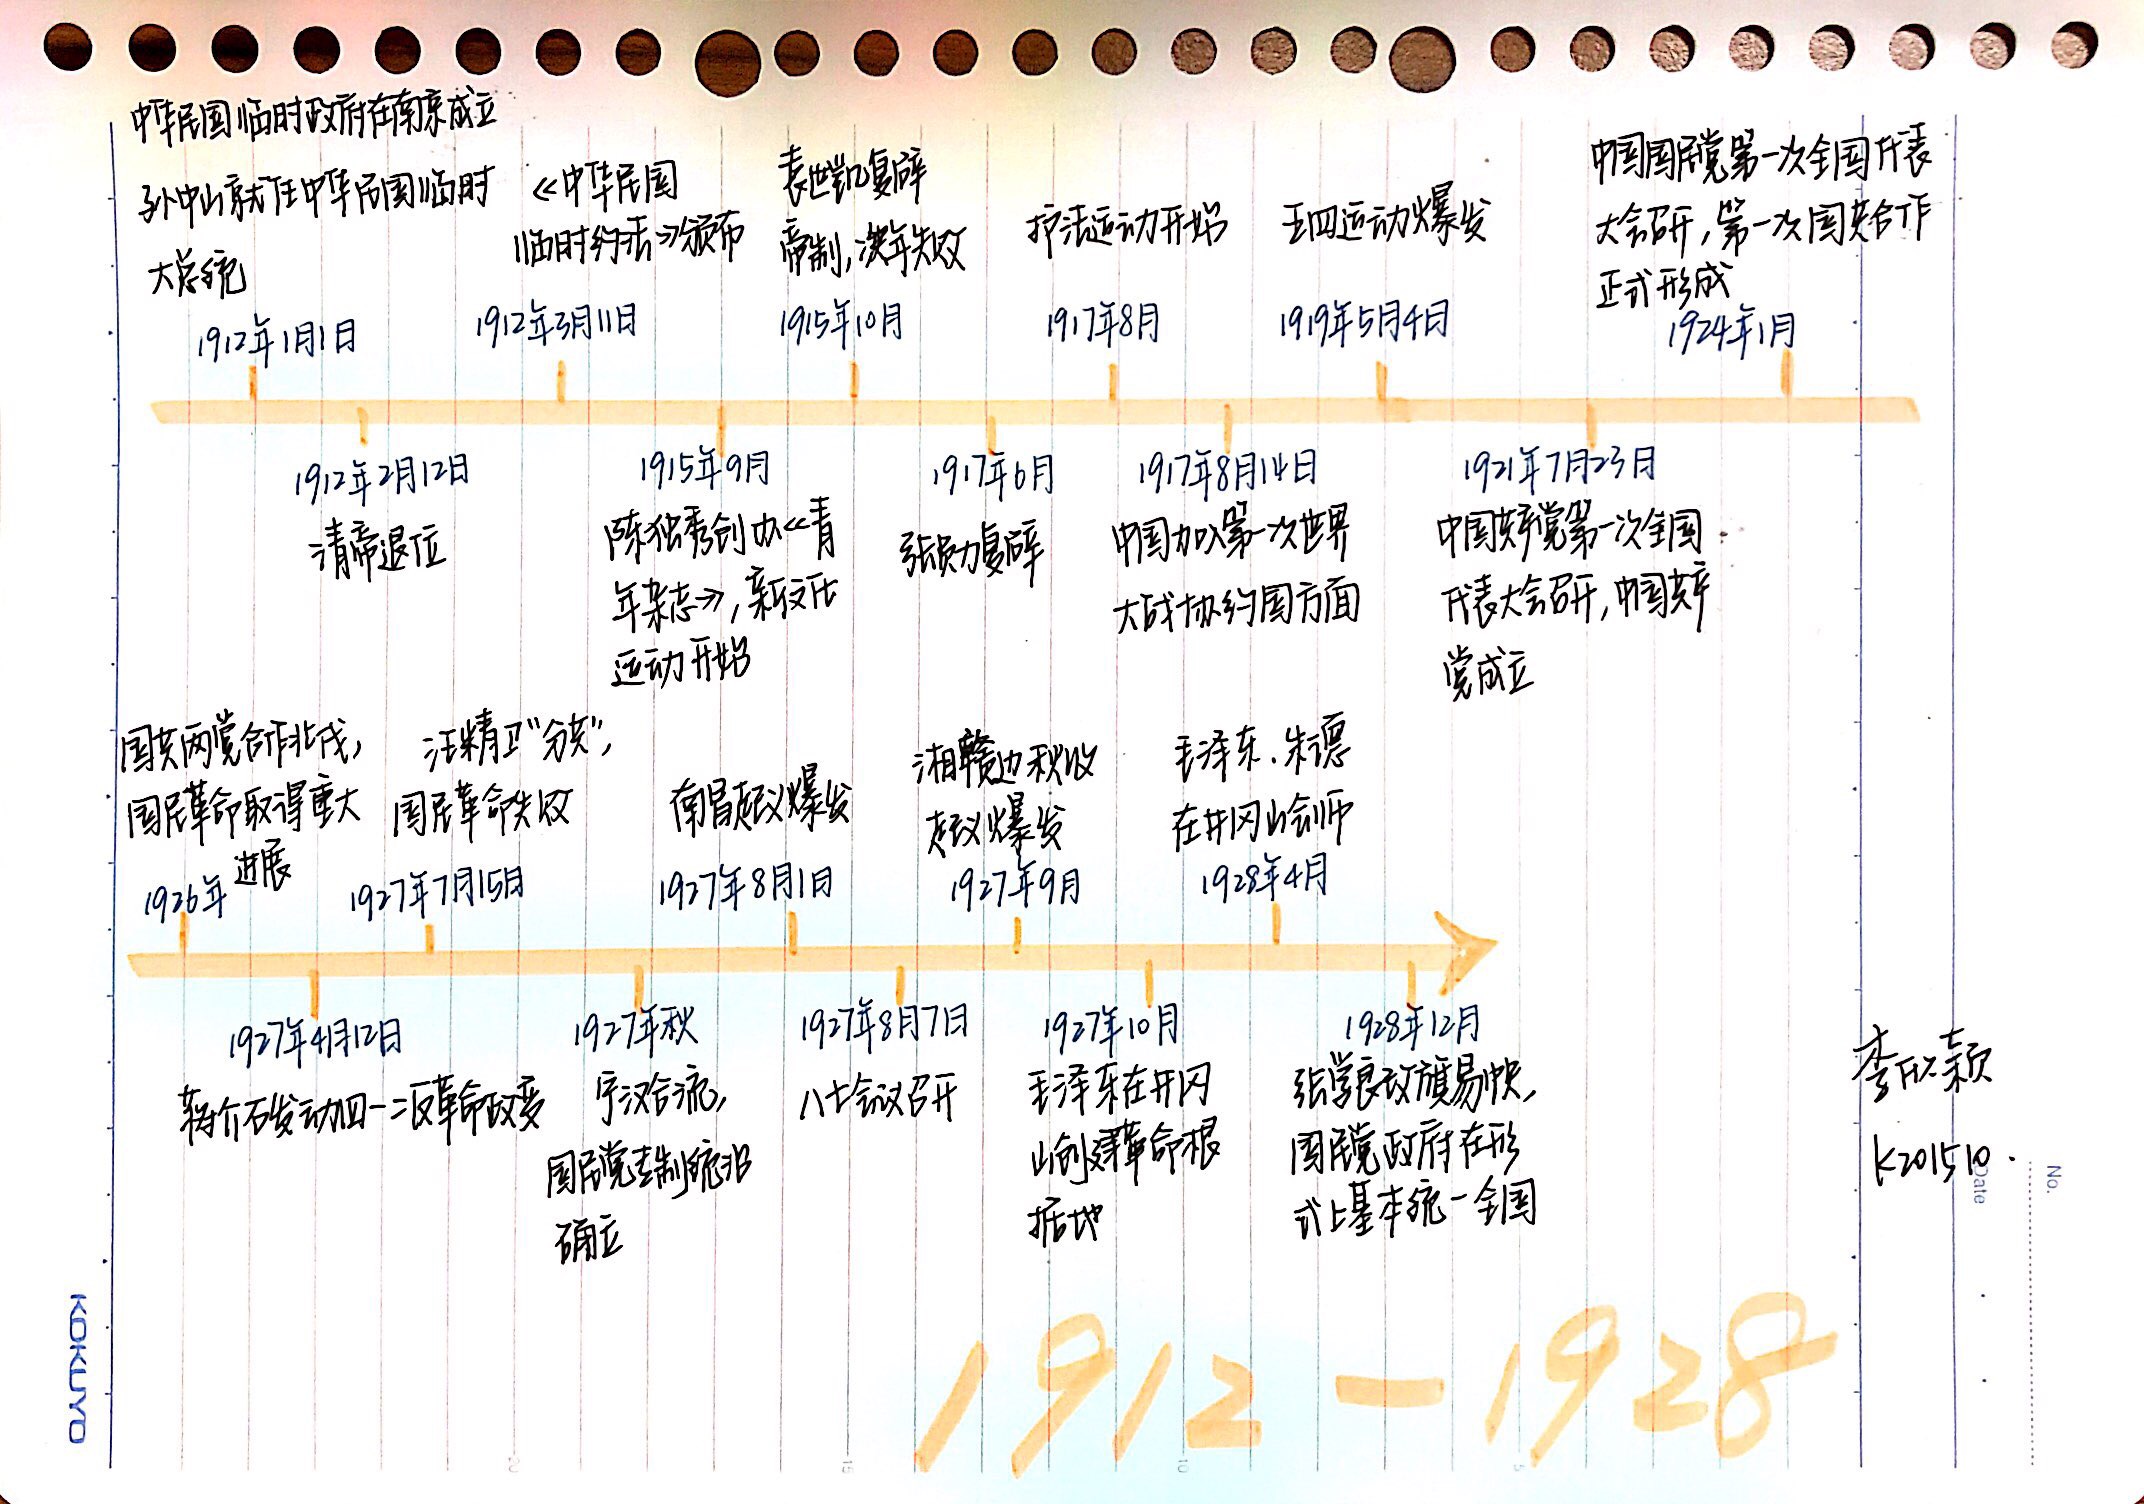 中华民国临时政府在南京成立
孙中山就任中华民国临时
大总统
1912年1月1日
《中华民国
临时约法》颁布
1912年3月11日
袁世凯复辟
帝制,次年失败
1915年10月
护法运动开始
1917年8月
五四运动爆发
1919年5月4日
中国国民党第一次全国代表
大会召开,第一次国共合作
正式形成
1924年1月
1912年2月12日
清帝退位
1915年9月
陈独秀创办《青
年杂志》,新文化
运动开始
1917年6月
张勋复辟
1917年8月14日
中国加入第一次世界
大战协约国方面
1921年7月23日
中国共产党第一次全国
代表大会召开,中国共产
党成立
国共两党合作北伐,
国民革命取得重大
进展
1926年
汪精卫“分共”,
国民革命失败
1927年7月15日
南昌起义爆发
1927年8月1日
湘赣边秋收
起义爆发
1927年9月
毛泽东.朱德
在井冈山会师
1928年4月
1927年4月12日
蒋介石发动四一二反革命政变
1927年秋
宁汉合流,
国民党专制统治
确立
1927年8月7日
八七会议召开
1927年10月
毛泽东在井冈
山创建革命根
据地
1928年12月
张学良改旗易帜,
国民党政府在形
式上基本统一全国
李欣颖
K201510.
No.
Date
KOKUYO
1912-1928
20
15
10
5